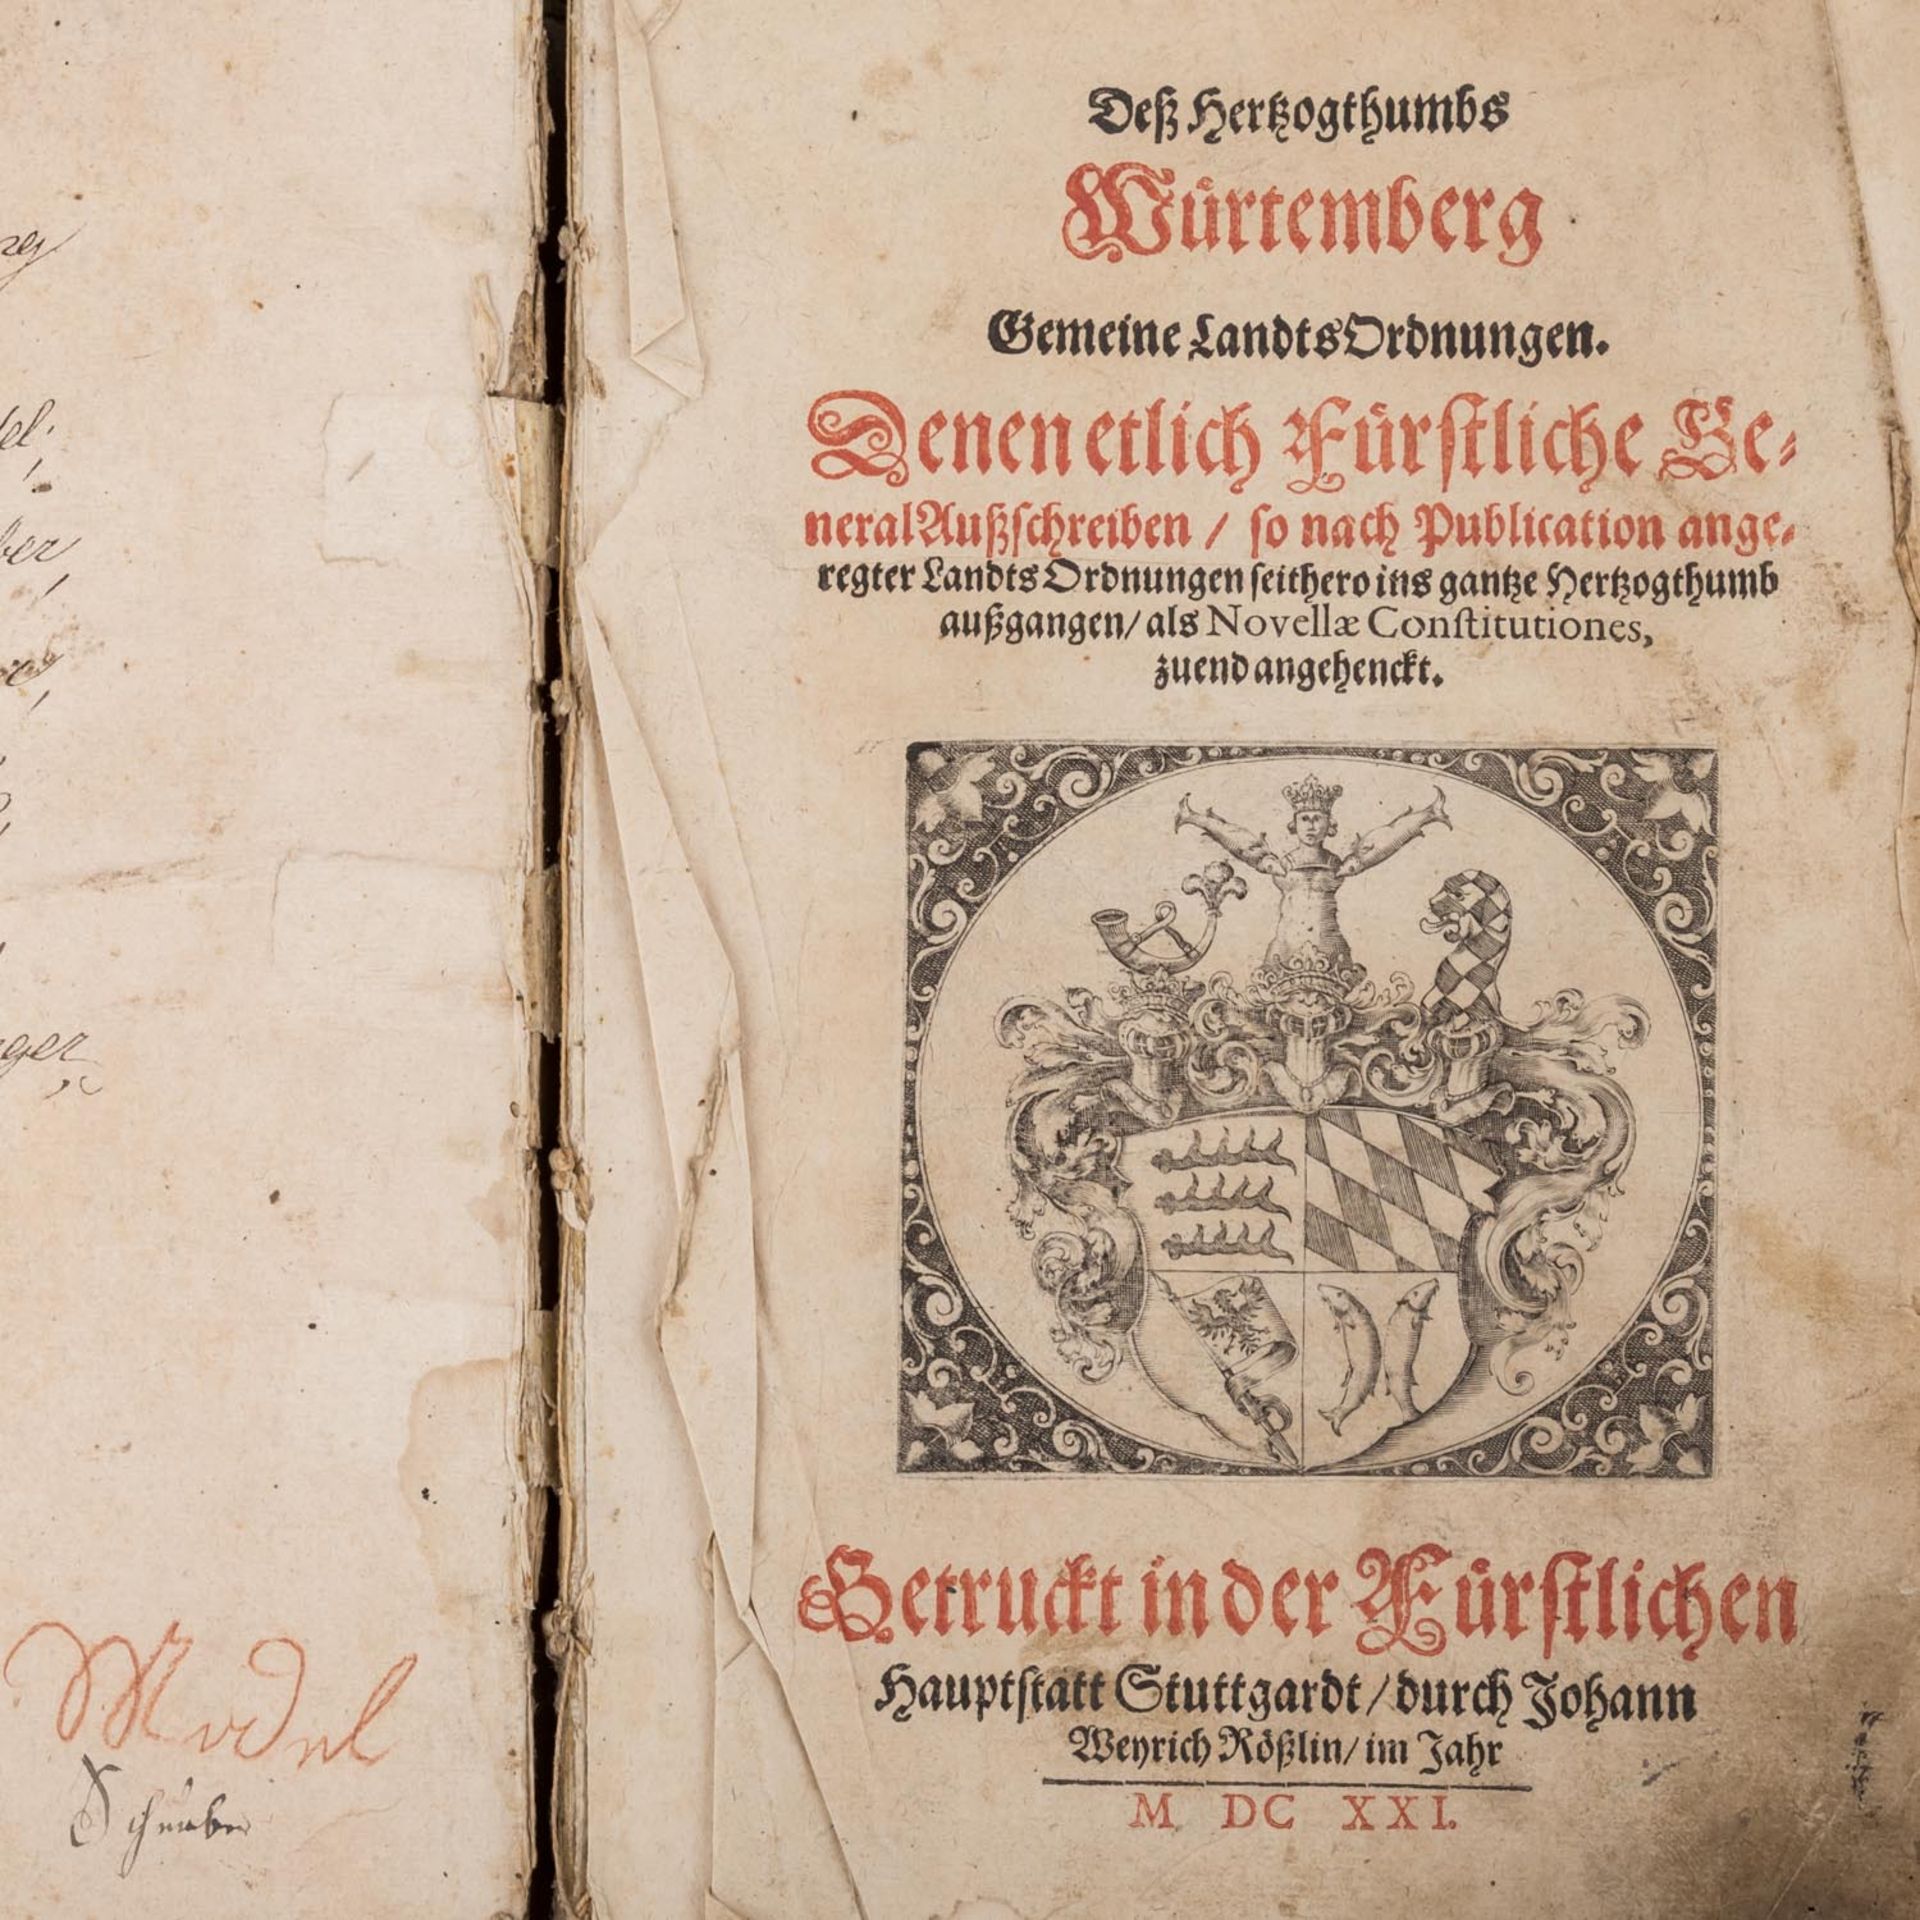 Deß Hertzogthumbs
Würtemberg
Gemeine LandtsOrdnungen.
Denen etlich Fürstliche Ge-
neral Außschreiben / so nach Publication ange-
regter Landts Ordnungen seithero ins gantze Hertzogthumb
außgangen / als Novellæ Constitutiones,
zuend angehenckt.
Getruckt in der Fürstlichen
Hauptstatt Stuttgardt / durch Johann
Weyrich Rößlin / im Jahr
M DC XXI.